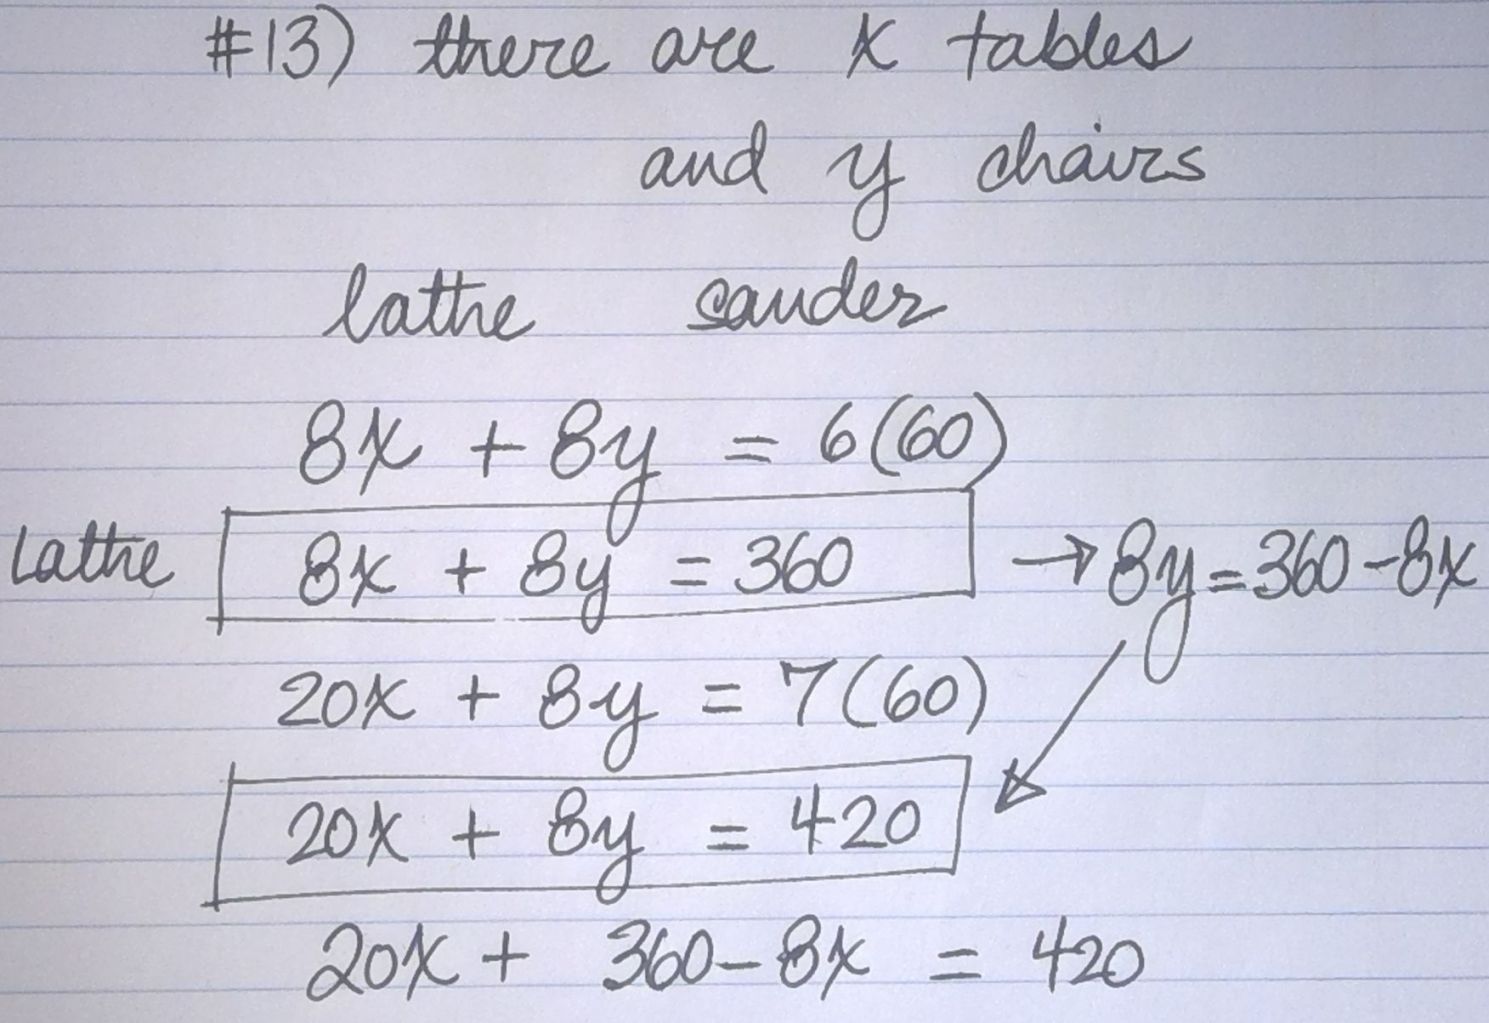 #13) there are x tables
and y chairs
lathe sander
8x + 8y = 6(60)
Lathe 8x + 8y = 360 → 8y = 360 - 8x
20x + 8y = 7(60)
20x + 8y = 420
20x + 360 - 8x = 420